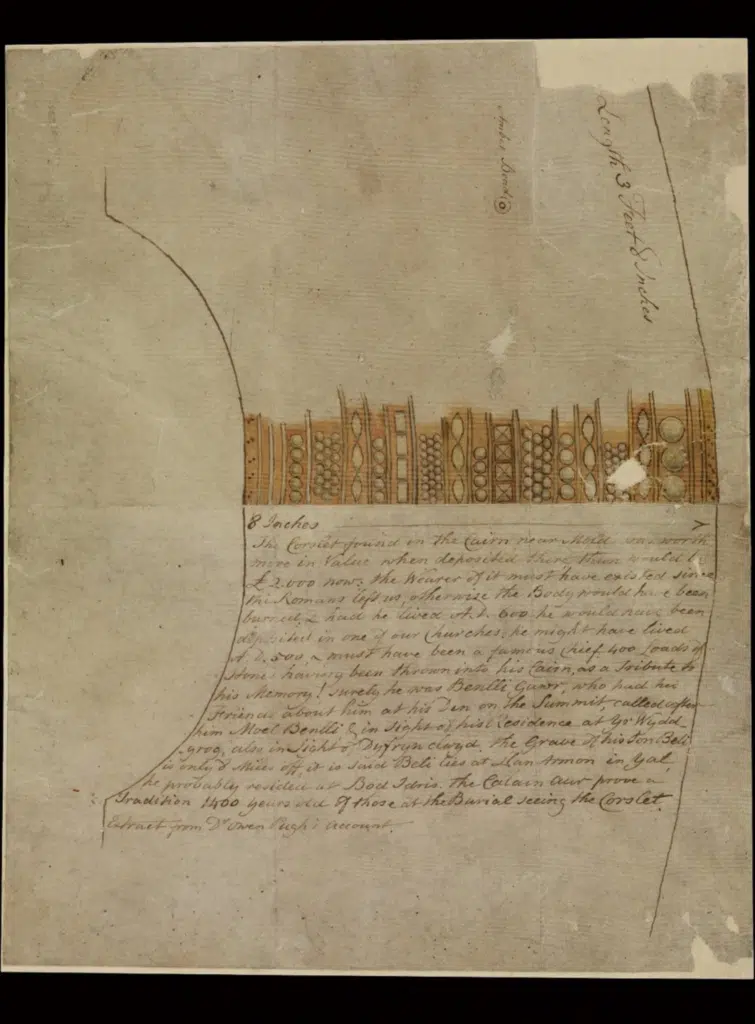 Amber Bead
Length 3 Feet 8 Inches
8 Inches
The Corslet found in the Cairn near Mold was worth
more in Value when deposited there than would be
£2.000 now; the Wearer of it must have existed since
the Romans left us, otherwise the Body would have been
burned, & had he lived A.D. 600 he would have been
deposited in one of our Churches; he might have lived
A.D. 500 & must have been a famous Chief 400 Loads of
Stones having been thrown into his Cairn, as a Tribute to
his Memory! Surely he was Benlli Gawr, who had his
Friends about him at his Den on the Summit called after
him Moel Benlli & in Sight of his Residence at Yr Wydd
grug, also in Sight of Dyffryn Clwyd. The Grave of his Son Beli
is only Miles off, it is said Beli lies at Llan Armon in Yal,
he probably resided at Bod Idris. The Calain Aur prove a
Tradition 1400 years old of those at the Burial seeing the Corslet.
Extract from Dr Owen Pugh's Account.